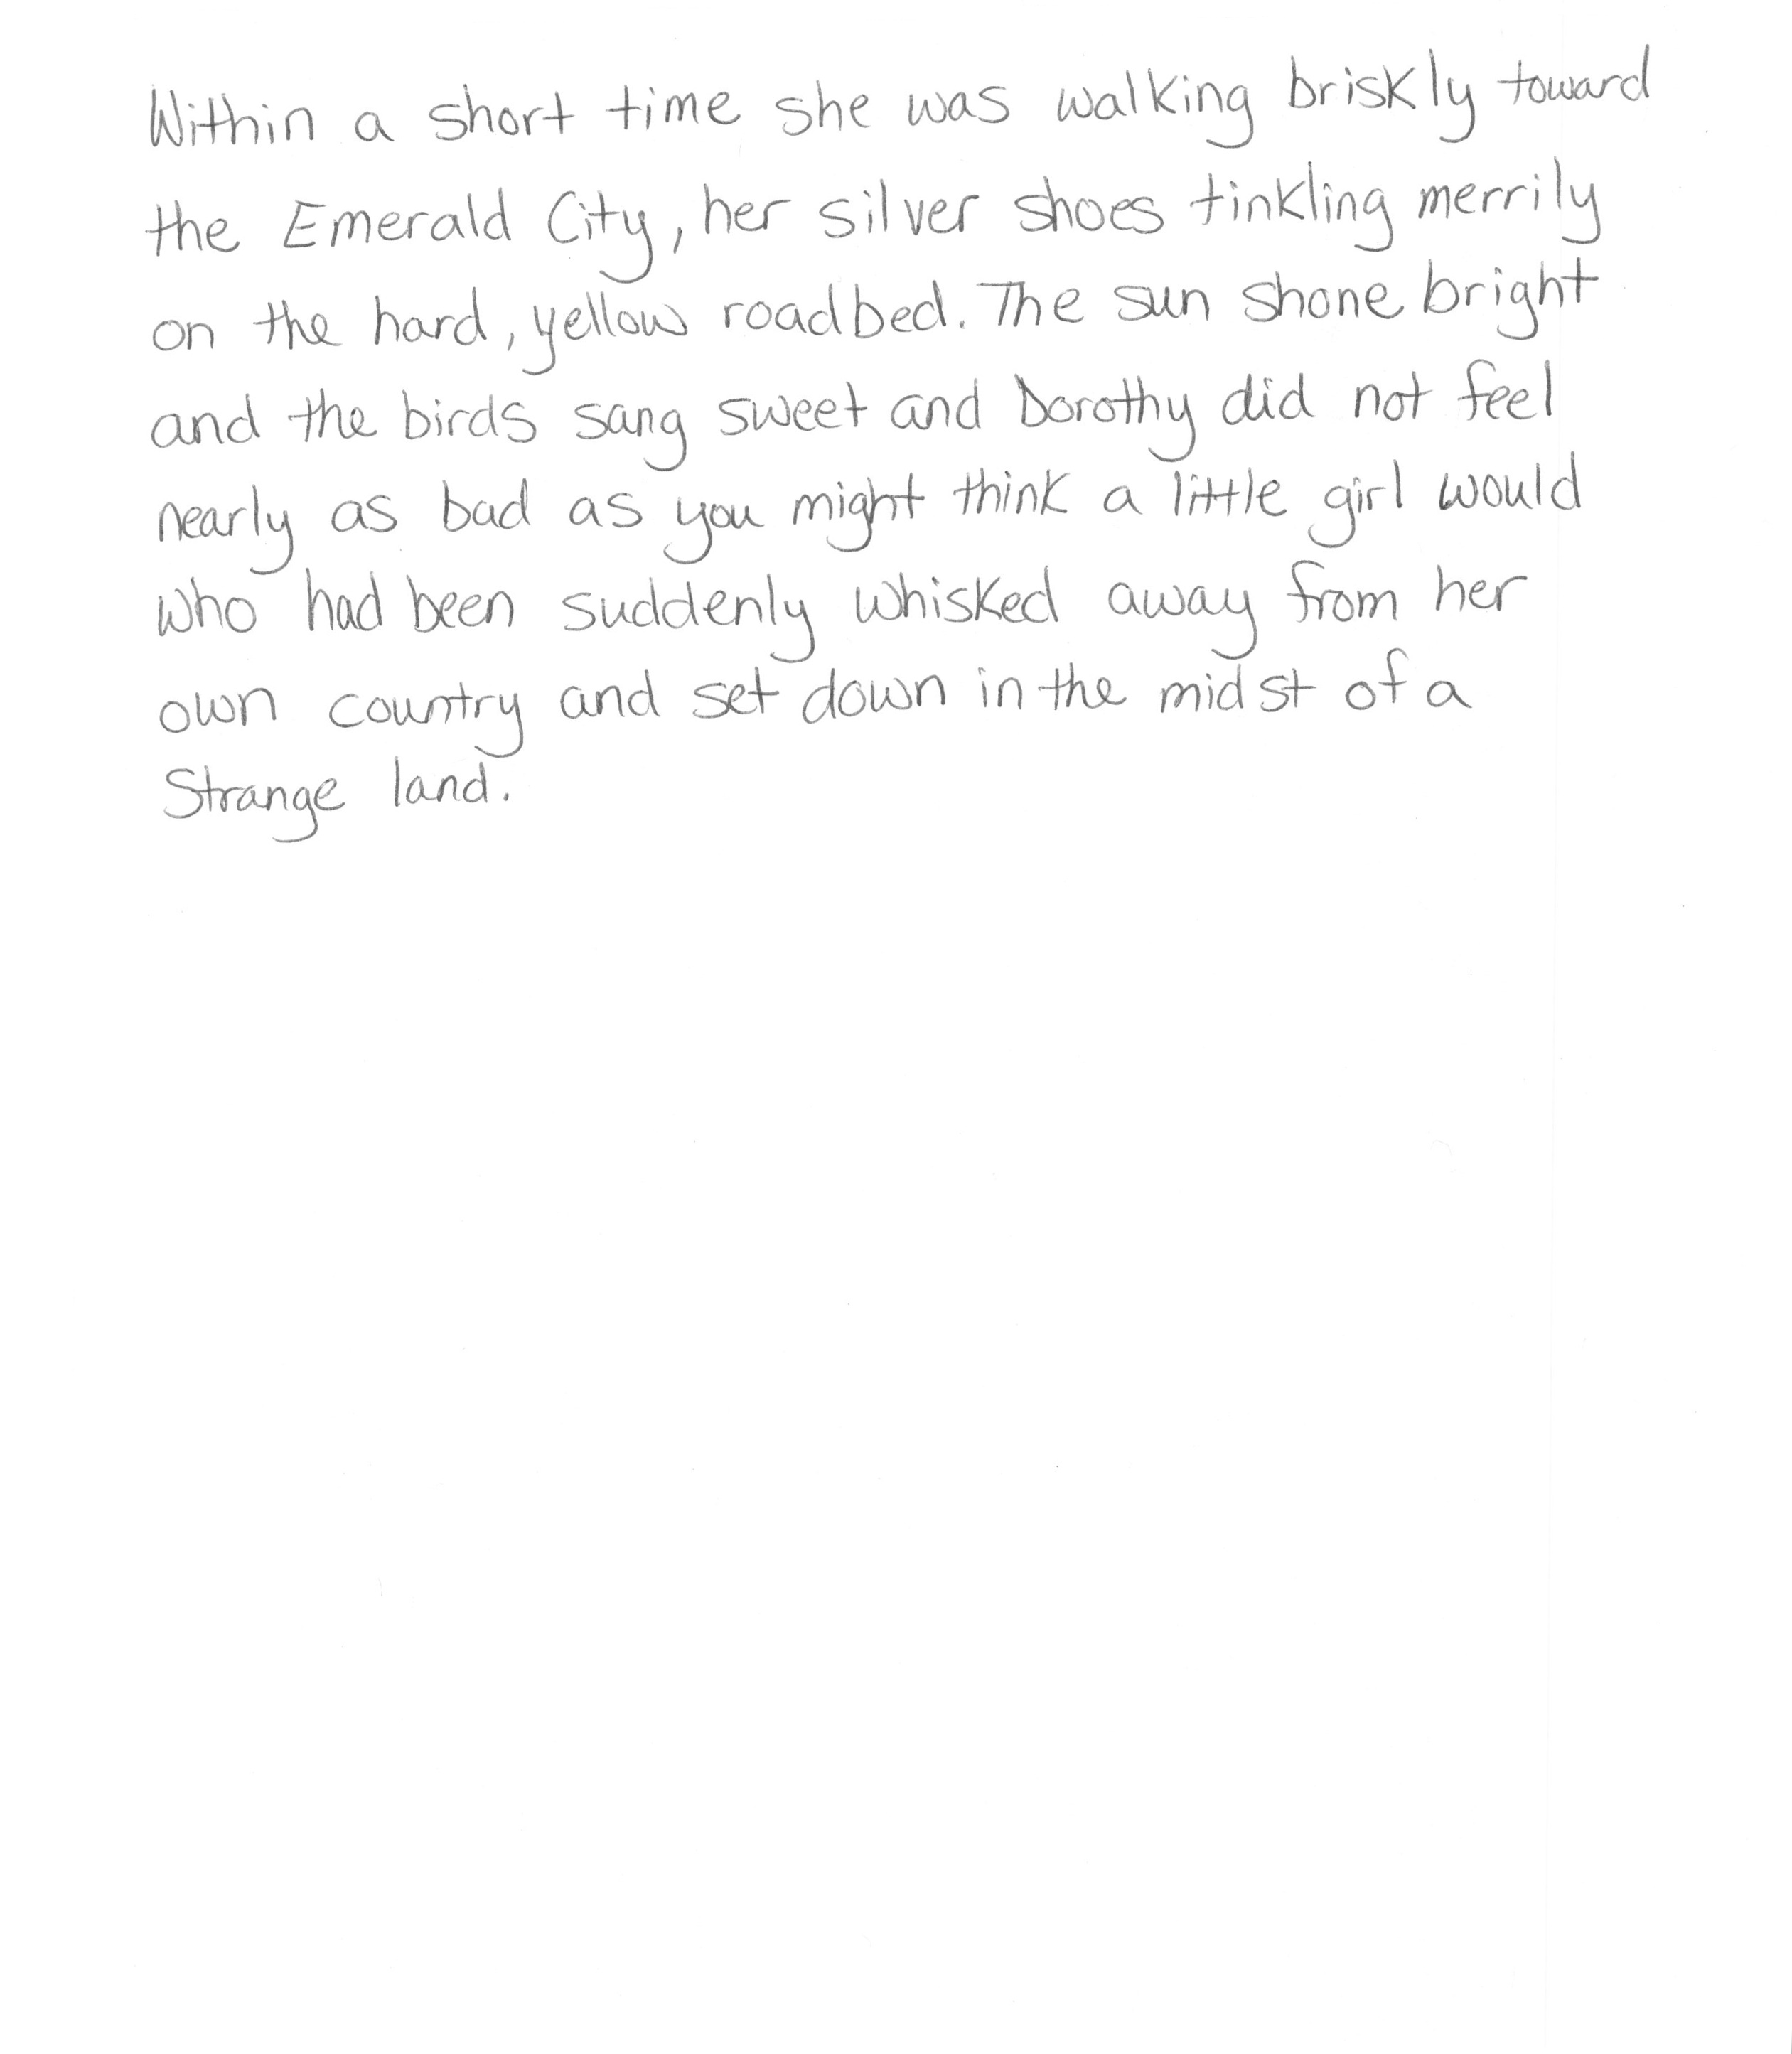 Within a short time she was walking briskly toward
the Emerald City, her silver shoes tinkling merrily
on the hard, yellow roadbed. The sun shone bright
and the birds sang sweet and Dorothy did not feel
nearly as bad as you might think a little girl would
who had been suddenly whisked away from her
own country and set down in the midst of a
Strange land.